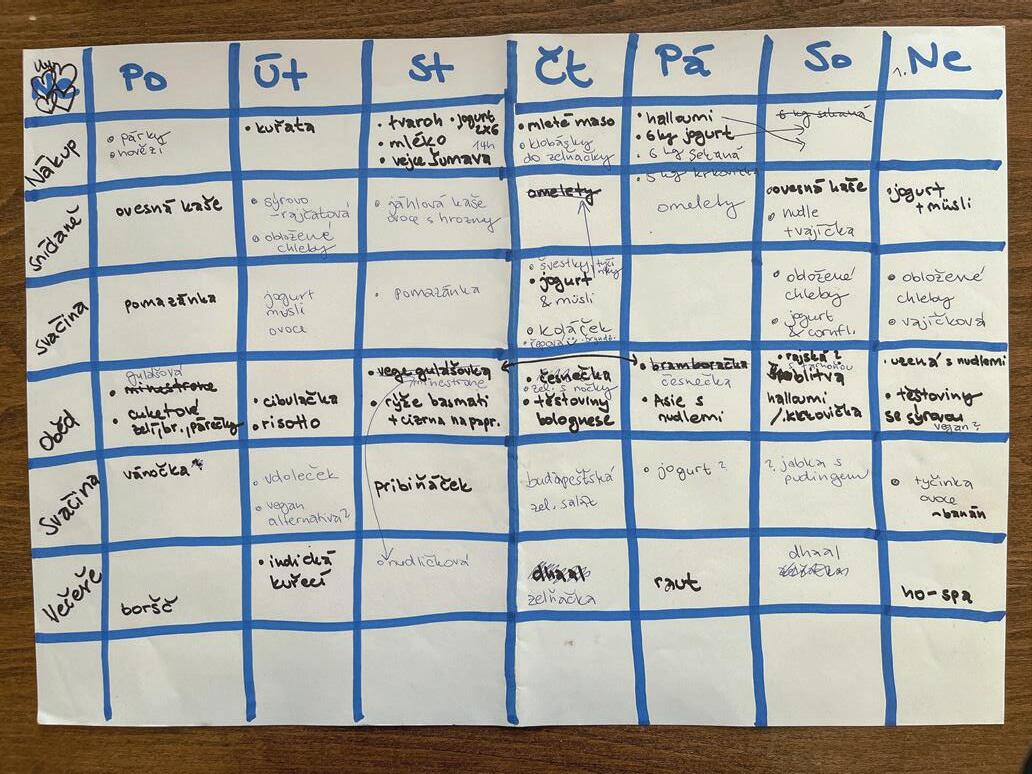 Po
Út
St
Čt
Pá
So
1. Ne
Nákup
• párky
• hovězí
• kuřata
• tvaroh • jogurt
2x6
• mléko 14h
• vejce Šumava
• mleté maso
• klobásky
do zelňačky
• halloumi
• 6kg jogurt
• 6 kg sekaná
6 kg sekaná
Snídaně
ovesná kaše
• sýrovo
-rajčatová
• obložené
chleby
• jáhlová kaše
ovoce s hrozny
omelety
• 5 kg
omelety
ovesná kaše
• nudle
+ vajíčka
• jogurt
+ müsli
Svačina
pomazánka
jogurt
müsli
ovoce
• pomazánka
• švestky
• jogurt
& müsli
• koláček
• obložené
chleby
• jogurt
& cornfl.
• obložené
chleby
• vajíčková
Oběd
gulášová
• minestrone
• cuketové
zelí, br., párečky
• cibulačka
• risotto
• vege gulášovka
minestrone
• rýže basmati
+ cizrna na papr.
• česnečka
• zel. s nočky
• těstoviny
bolognese
• bramboračka
česnečka
• Asie s
nudlemi
• rajská ?
blitva
halloumi
/ krkovička
• uzená s nudlemi
• těstoviny
se sýrovou
vegan ?
Svačina
vánočka
• vdoleček
• vegan
alternativa?
pribiňáček
budapešťská
zel. salát
• jogurt ?
? jablka s
pudingem
• tyčinka
ovoce
~banán
Večeře
boršč
• indická
kuřecí
• nudličková
dhaal
zelňačka
raut
dhaal
ho-spa